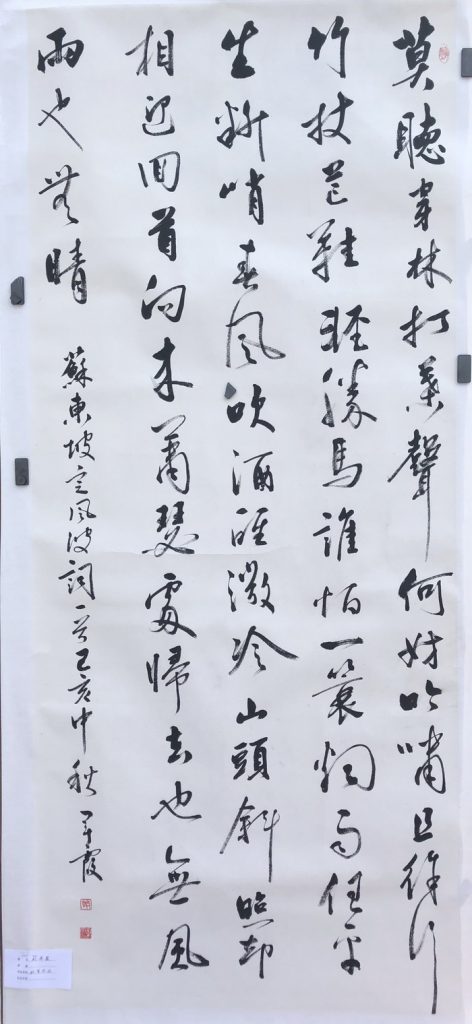 莫聽穿林打葉聲何妨吟嘯且徐行
竹杖芒鞋輕勝馬誰怕一蓑烟雨任平
生料峭春風吹酒醒微冷山頭斜照却
相迎回首向來蕭瑟處歸去也無風
雨也無晴
蘇東坡定風波詞一首己亥中秋霞